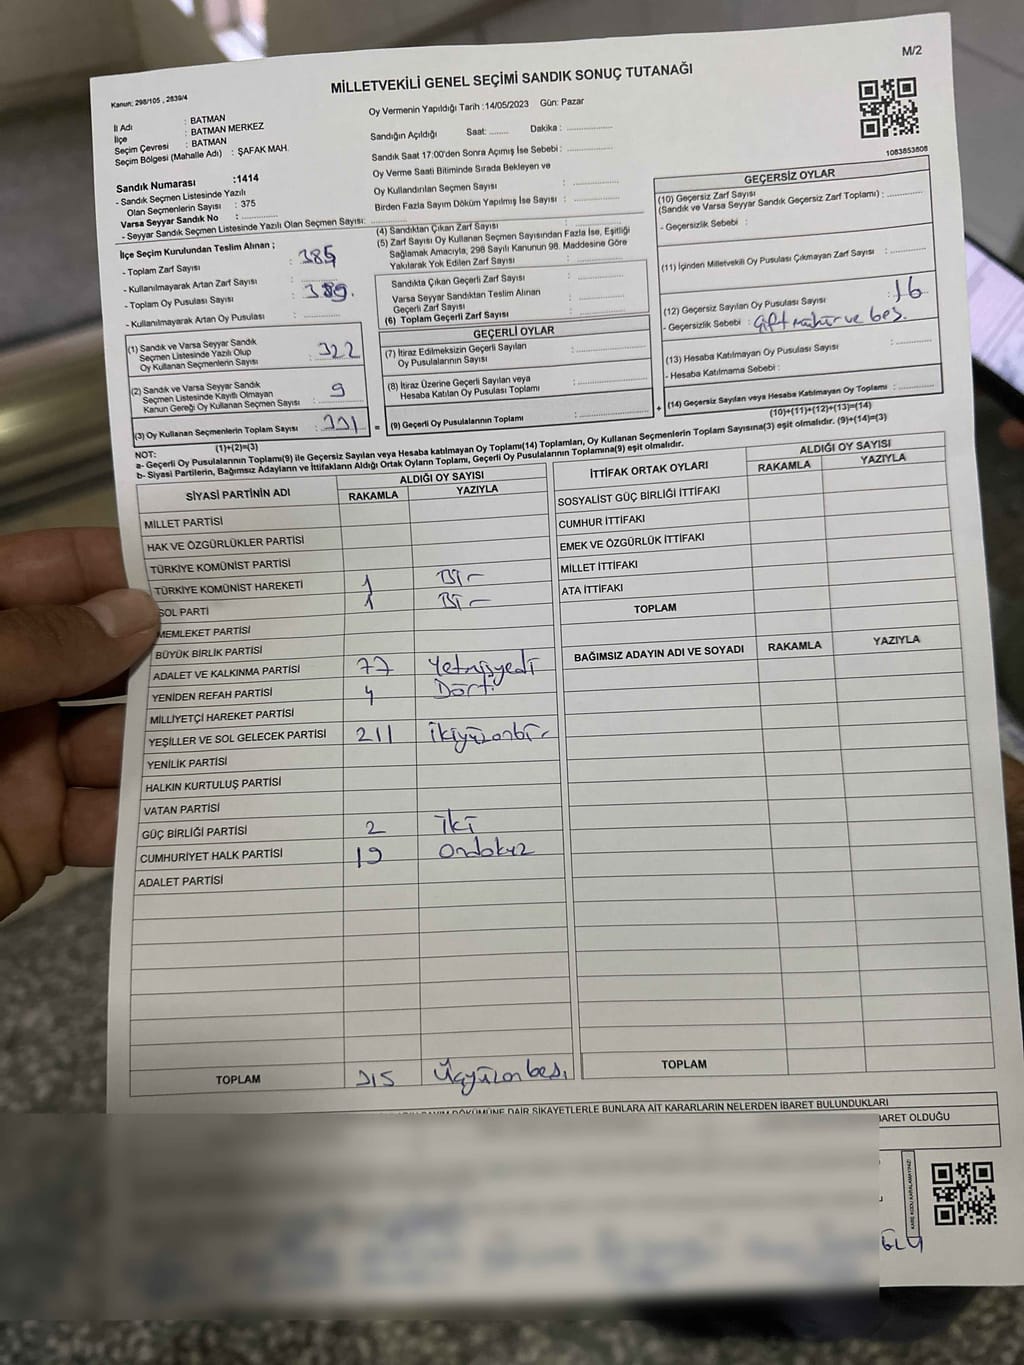 M/2
MİLLETVEKİLİ GENEL SEÇİMİ SANDIK SONUÇ TUTANAĞI
Kanun: 298/105 , 2839/4
İl Adı : BATMAN
İlçe : BATMAN MERKEZ
Seçim Çevresi : BATMAN
Seçim Bölgesi (Mahalle Adı) : ŞAFAK MAH.
Sandık Numarası :1414
- Sandık Seçmen Listesinde Yazılı
Olan Seçmenlerin Sayısı : 375
Varsa Seyyar Sandık No : ..............
- Seyyar Sandık Seçmen Listesinde Yazılı Olan Seçmen Sayısı: ..............
Oy Vermenin Yapıldığı Tarih :14/05/2023 Gün: Pazar
Sandığın Açıldığı Saat: ........ Dakika : ..................
Sandık Saat 17:00'den Sonra Açımış İse Sebebi : ..................
Oy Verme Saati Bitiminde Sırada Bekleyen ve
Oy Kullandırılan Seçmen Sayısı : ..................
Birden Fazla Sayım Döküm Yapılmış İse Sayısı : ..................
1083853808
İlçe Seçim Kurulundan Teslim Alınan ;
- Toplam Zarf Sayısı : 385
- Kullanılmayarak Artan Zarf Sayısı : ..............
- Toplam Oy Pusulası Sayısı : 389.
- Kullanılmayarak Artan Oy Pusulası : ..............
(1) Sandık ve Varsa Seyyar Sandık
Seçmen Listesinde Yazılı Olup
Oy Kullanan Seçmenlerin Sayısı : 322
(2) Sandık ve Varsa Seyyar Sandık
Seçmen Listesinde Kayıtlı Olmayan
Kanun Gereği Oy Kullanan Seçmen Sayısı : 9
(3) Oy Kullanan Seçmenlerin Toplam Sayısı : 331
(1)+(2)=(3)
(4) Sandıktan Çıkan Zarf Sayısı : ..............
(5) Zarf Sayısı Oy Kullanan Seçmen Sayısından Fazla İse, Eşitliği
Sağlamak Amacıyla, 298 Sayılı Kanunun 98. Maddesine Göre
Yakılarak Yok Edilen Zarf Sayısı : ..............
Sandıkta Çıkan Geçerli Zarf Sayısı : ..............
Varsa Seyyar Sandıktan Teslim Alınan
Geçerli Zarf Sayısı : ..............
(6) Toplam Geçerli Zarf Sayısı : ..............
GEÇERLİ OYLAR
(7) İtiraz Edilmeksizin Geçerli Sayılan
Oy Pusulalarının Sayısı : ..................
(8) İtiraz Üzerine Geçerli Sayılan veya
Hesaba Katılan Oy Pusulası Toplamı : ..................
= (9) Geçerli Oy Pusulalarının Toplamı : .................. +
GEÇERSİZ OYLAR
(10) Geçersiz Zarf Sayısı
(Sandık ve Varsa Seyyar Sandık Geçersiz Zarf Toplamı) : ..............
- Geçersizlik Sebebi :
(11) İçinden Milletvekili Oy Pusulası Çıkmayan Zarf Sayısı : ..............
(12) Geçersiz Sayılan Oy Pusulası Sayısı : 16
- Geçersizlik Sebebi : Çift mühür ve boş.
(13) Hesaba Katılmayan Oy Pusulası Sayısı : ..............
- Hesaba Katılmama Sebebi :
(14) Geçersiz Sayılan veya Hesaba Katılmayan Oy Toplamı : ..............
(10)+(11)+(12)+(13)=(14)
NOT:
a- Geçerli Oy Pusulalarının Toplamı(9) ile Geçersiz Sayılan veya Hesaba katılmayan Oy Toplamı(14) Toplamları, Oy Kullanan Seçmenlerin Toplam Sayısına(3) eşit olmalıdır. (9)+(14)=(3)
b- Siyasi Partilerin, Bağımsız Adayların ve İttifakların Aldığı Ortak Oyların Toplamı, Geçerli Oy Pusulalarının Toplamına(9) eşit olmalıdır.
SİYASİ PARTİNİN ADI ALDIĞI OY SAYISI
RAKAMLA YAZIYLA
MİLLET PARTİSİ
HAK VE ÖZGÜRLÜKLER PARTİSİ
TÜRKİYE KOMÜNİST PARTİSİ
TÜRKİYE KOMÜNİST HAREKETİ 1 Bir
SOL PARTİ 1 Bir
MEMLEKET PARTİSİ
BÜYÜK BİRLİK PARTİSİ
ADALET VE KALKINMA PARTİSİ 77 Yetmişyedi
YENİDEN REFAH PARTİSİ 4 Dört
MİLLİYETÇİ HAREKET PARTİSİ
YEŞİLLER VE SOL GELECEK PARTİSİ 211 ikiyüzonbir
YENİLİK PARTİSİ
HALKIN KURTULUŞ PARTİSİ
VATAN PARTİSİ
GÜÇ BİRLİĞİ PARTİSİ 2 İki
CUMHURİYET HALK PARTİSİ 19 Ondokuz
ADALET PARTİSİ
TOPLAM 315 Üçyüzonbeş
İTTİFAK ORTAK OYLARI ALDIĞI OY SAYISI
RAKAMLA YAZIYLA
SOSYALİST GÜÇ BİRLİĞİ İTTİFAKI
CUMHUR İTTİFAKI
EMEK VE ÖZGÜRLÜK İTTİFAKI
MİLLET İTTİFAKI
ATA İTTİFAKI
TOPLAM
BAĞIMSIZ ADAYIN ADI VE SOYADI RAKAMLA YAZIYLA
TOPLAM
DÖKÜMÜNE DAİR ŞİKAYETLERLE BUNLARA AİT KARARLARIN NELERDEN İBARET BULUNDUKLARI
BARET OLDUĞU
KARE KODU KARALAMAYINIZ!